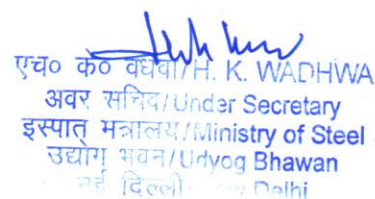 एच० के० वधवा/H. K. WADHWA
अवर सचिव/Under Secretary
इस्पात मंत्रालय/Ministry of Steel
उद्योग भवन/Udyog Bhawan
नई दिल्ली Delhi